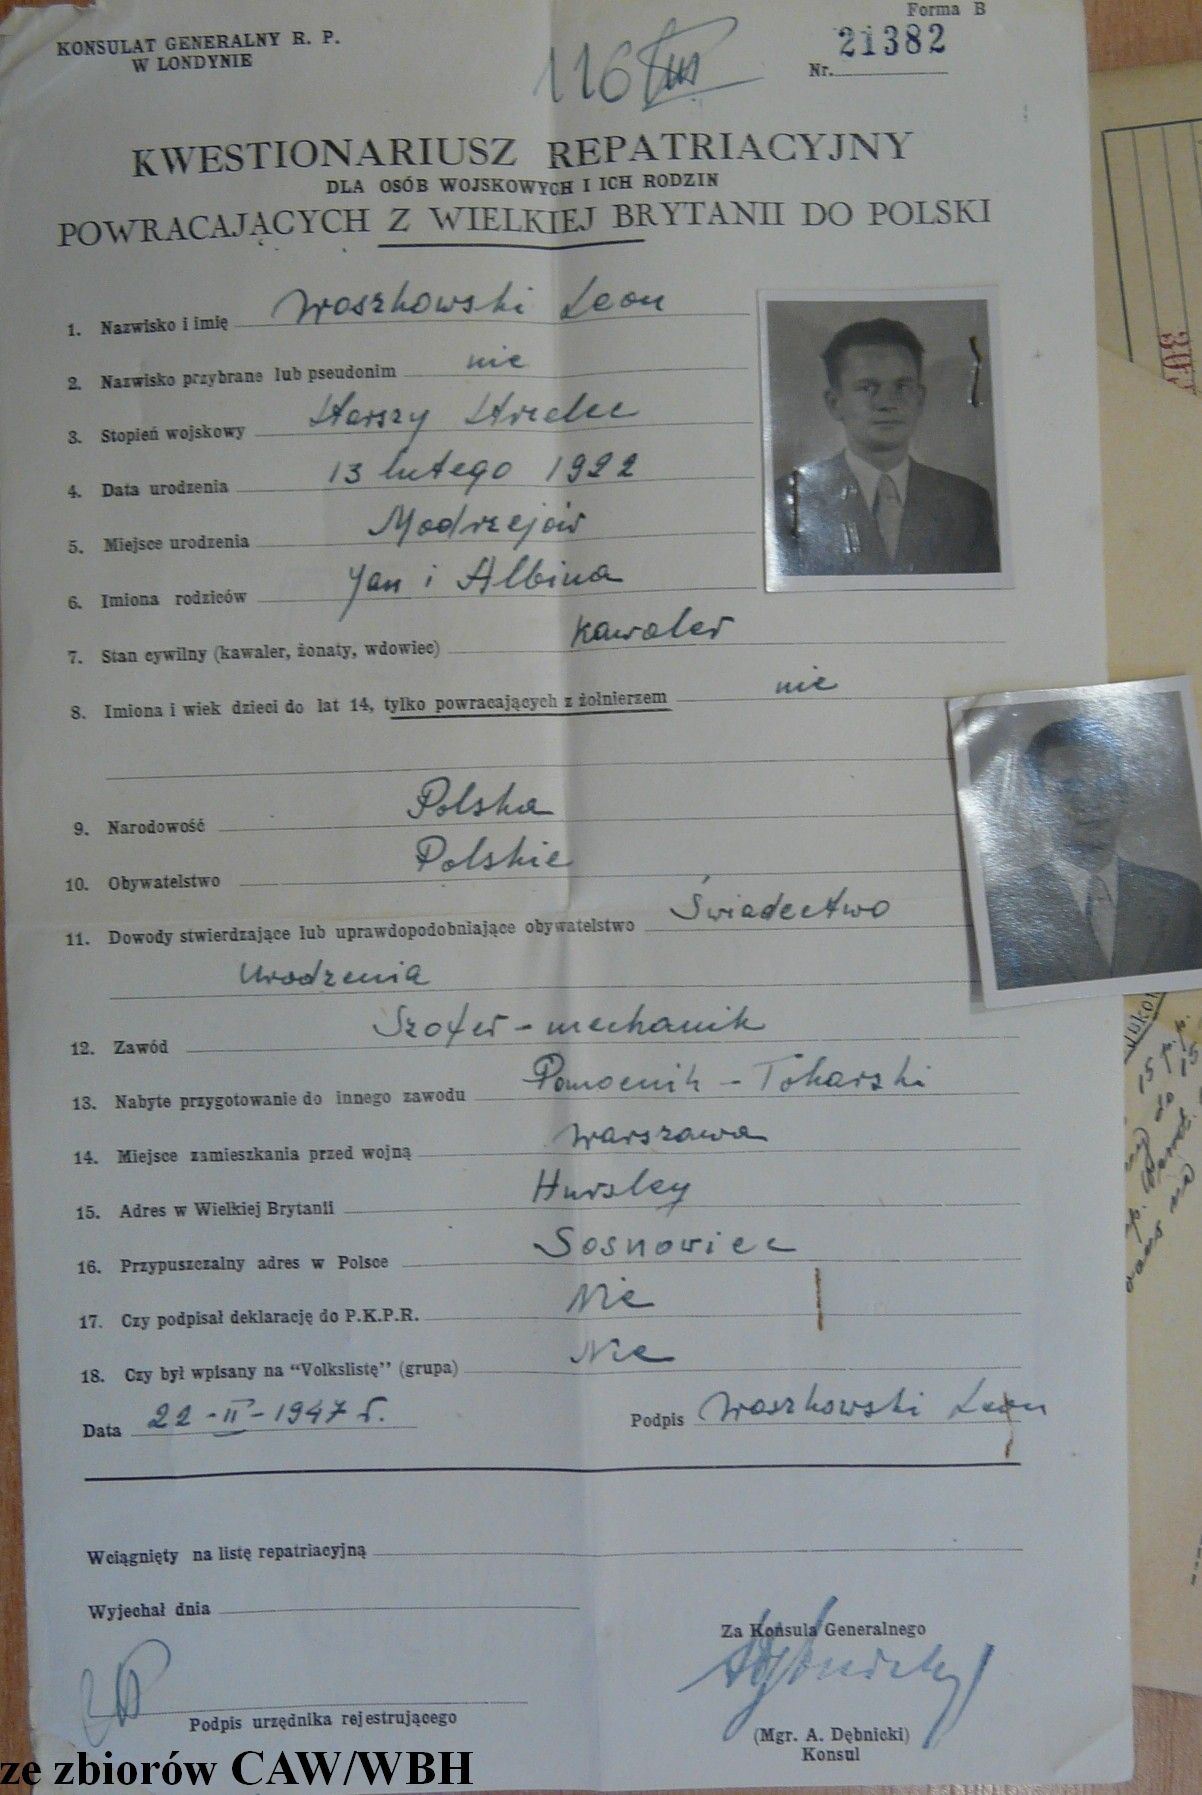 Forma B
KONSULAT GENERALNY R. P.
W LONDYNIE
21382
Nr.
116
KWESTIONARIUSZ REPATRIACYJNY
DLA OSÓB WOJSKOWYCH I ICH RODZIN
POWRACAJĄCYCH Z WIELKIEJ BRYTANII DO POLSKI
1. Nazwisko i imię Woszkowski Leon
2. Nazwisko przybrane lub pseudonim nie
3. Stopień wojskowy Starszy Strzelec
4. Data urodzenia 13 lutego 1922
5. Miejsce urodzenia Modrzejów
6. Imiona rodziców Jan i Albina
7. Stan cywilny (kawaler, żonaty, wdowiec) kawaler
8. Imiona i wiek dzieci do lat 14, tylko powracających z żołnierzem nie
9. Narodowość Polska
10. Obywatelstwo Polskie
11. Dowody stwierdzające lub uprawdopodobniające obywatelstwo Świadectwo
Urodzenia
12. Zawód Szofer - mechanik
13. Nabyte przygotowanie do innego zawodu Pomocnik - Tokarski
14. Miejsce zamieszkania przed wojną Warszawa
15. Adres w Wielkiej Brytanii Hursley
16. Przypuszczalny adres w Polsce Sosnowiec
17. Czy podpisał deklarację do P.K.P.R. Nie
18. Czy był wpisany na "Volkslistę" (grupa) Nie
Data 22-II-1947 r. Podpis Woszkowski Leon
Wciągnięty na listę repatriacyjną
Wyjechał dnia
Za Konsula Generalnego
Podpis urzędnika rejestrującego
(Mgr. A. Dębnicki)
Konsul
ze zbiorów CAW/WBH